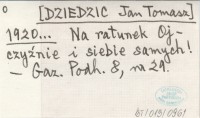 [DZIEDZIC Jan Tomasz]
1920... Na ratunek Oj-
czyźnie i siebie samych!
— Gaz. Podh. 8, nr 29.